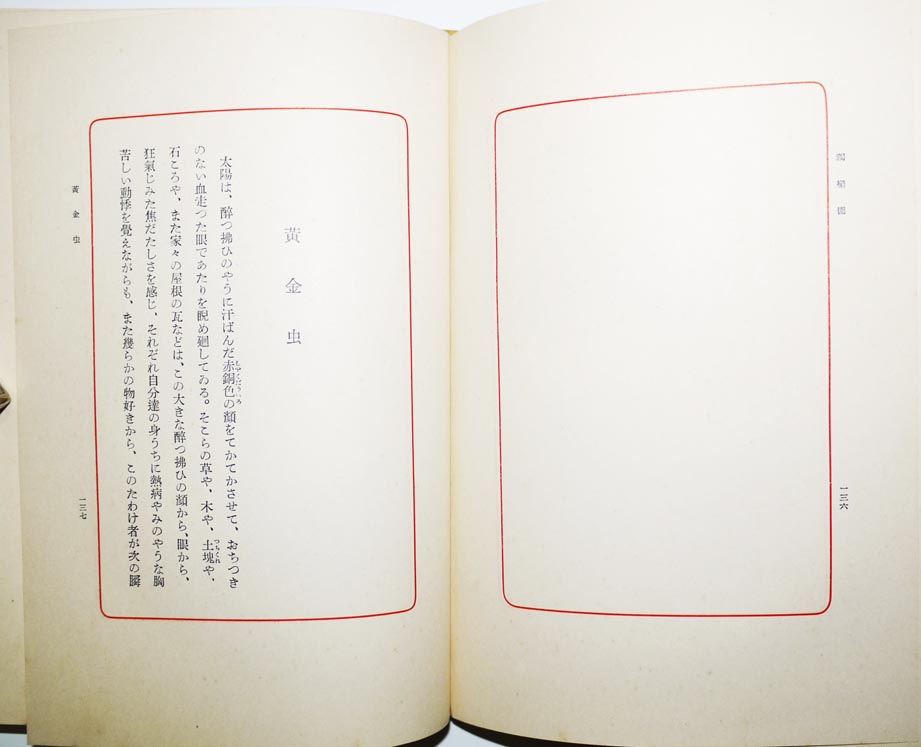 獨樂園
一三六
黃金虫
太陽は、醉つ拂ひのやうに汗ばんだ赤銅色の顏をてかてかさせて、おちつき
のない血走つた眼であたりを睨め廻してゐる。そこらの草や、木や、土塊や、
つちくれ
石ころや、また家々の屋根の瓦などは、この大きな醉つ拂ひの顏から、眼から、
狂氣じみた焦だたしさを感じ、それぞれ自分達の身うちに熱病やみのやうな胸
苦しい動悸を覺えながらも、また幾らかの物好きから、このたわけ者が次の瞬
黃金虫
一三七